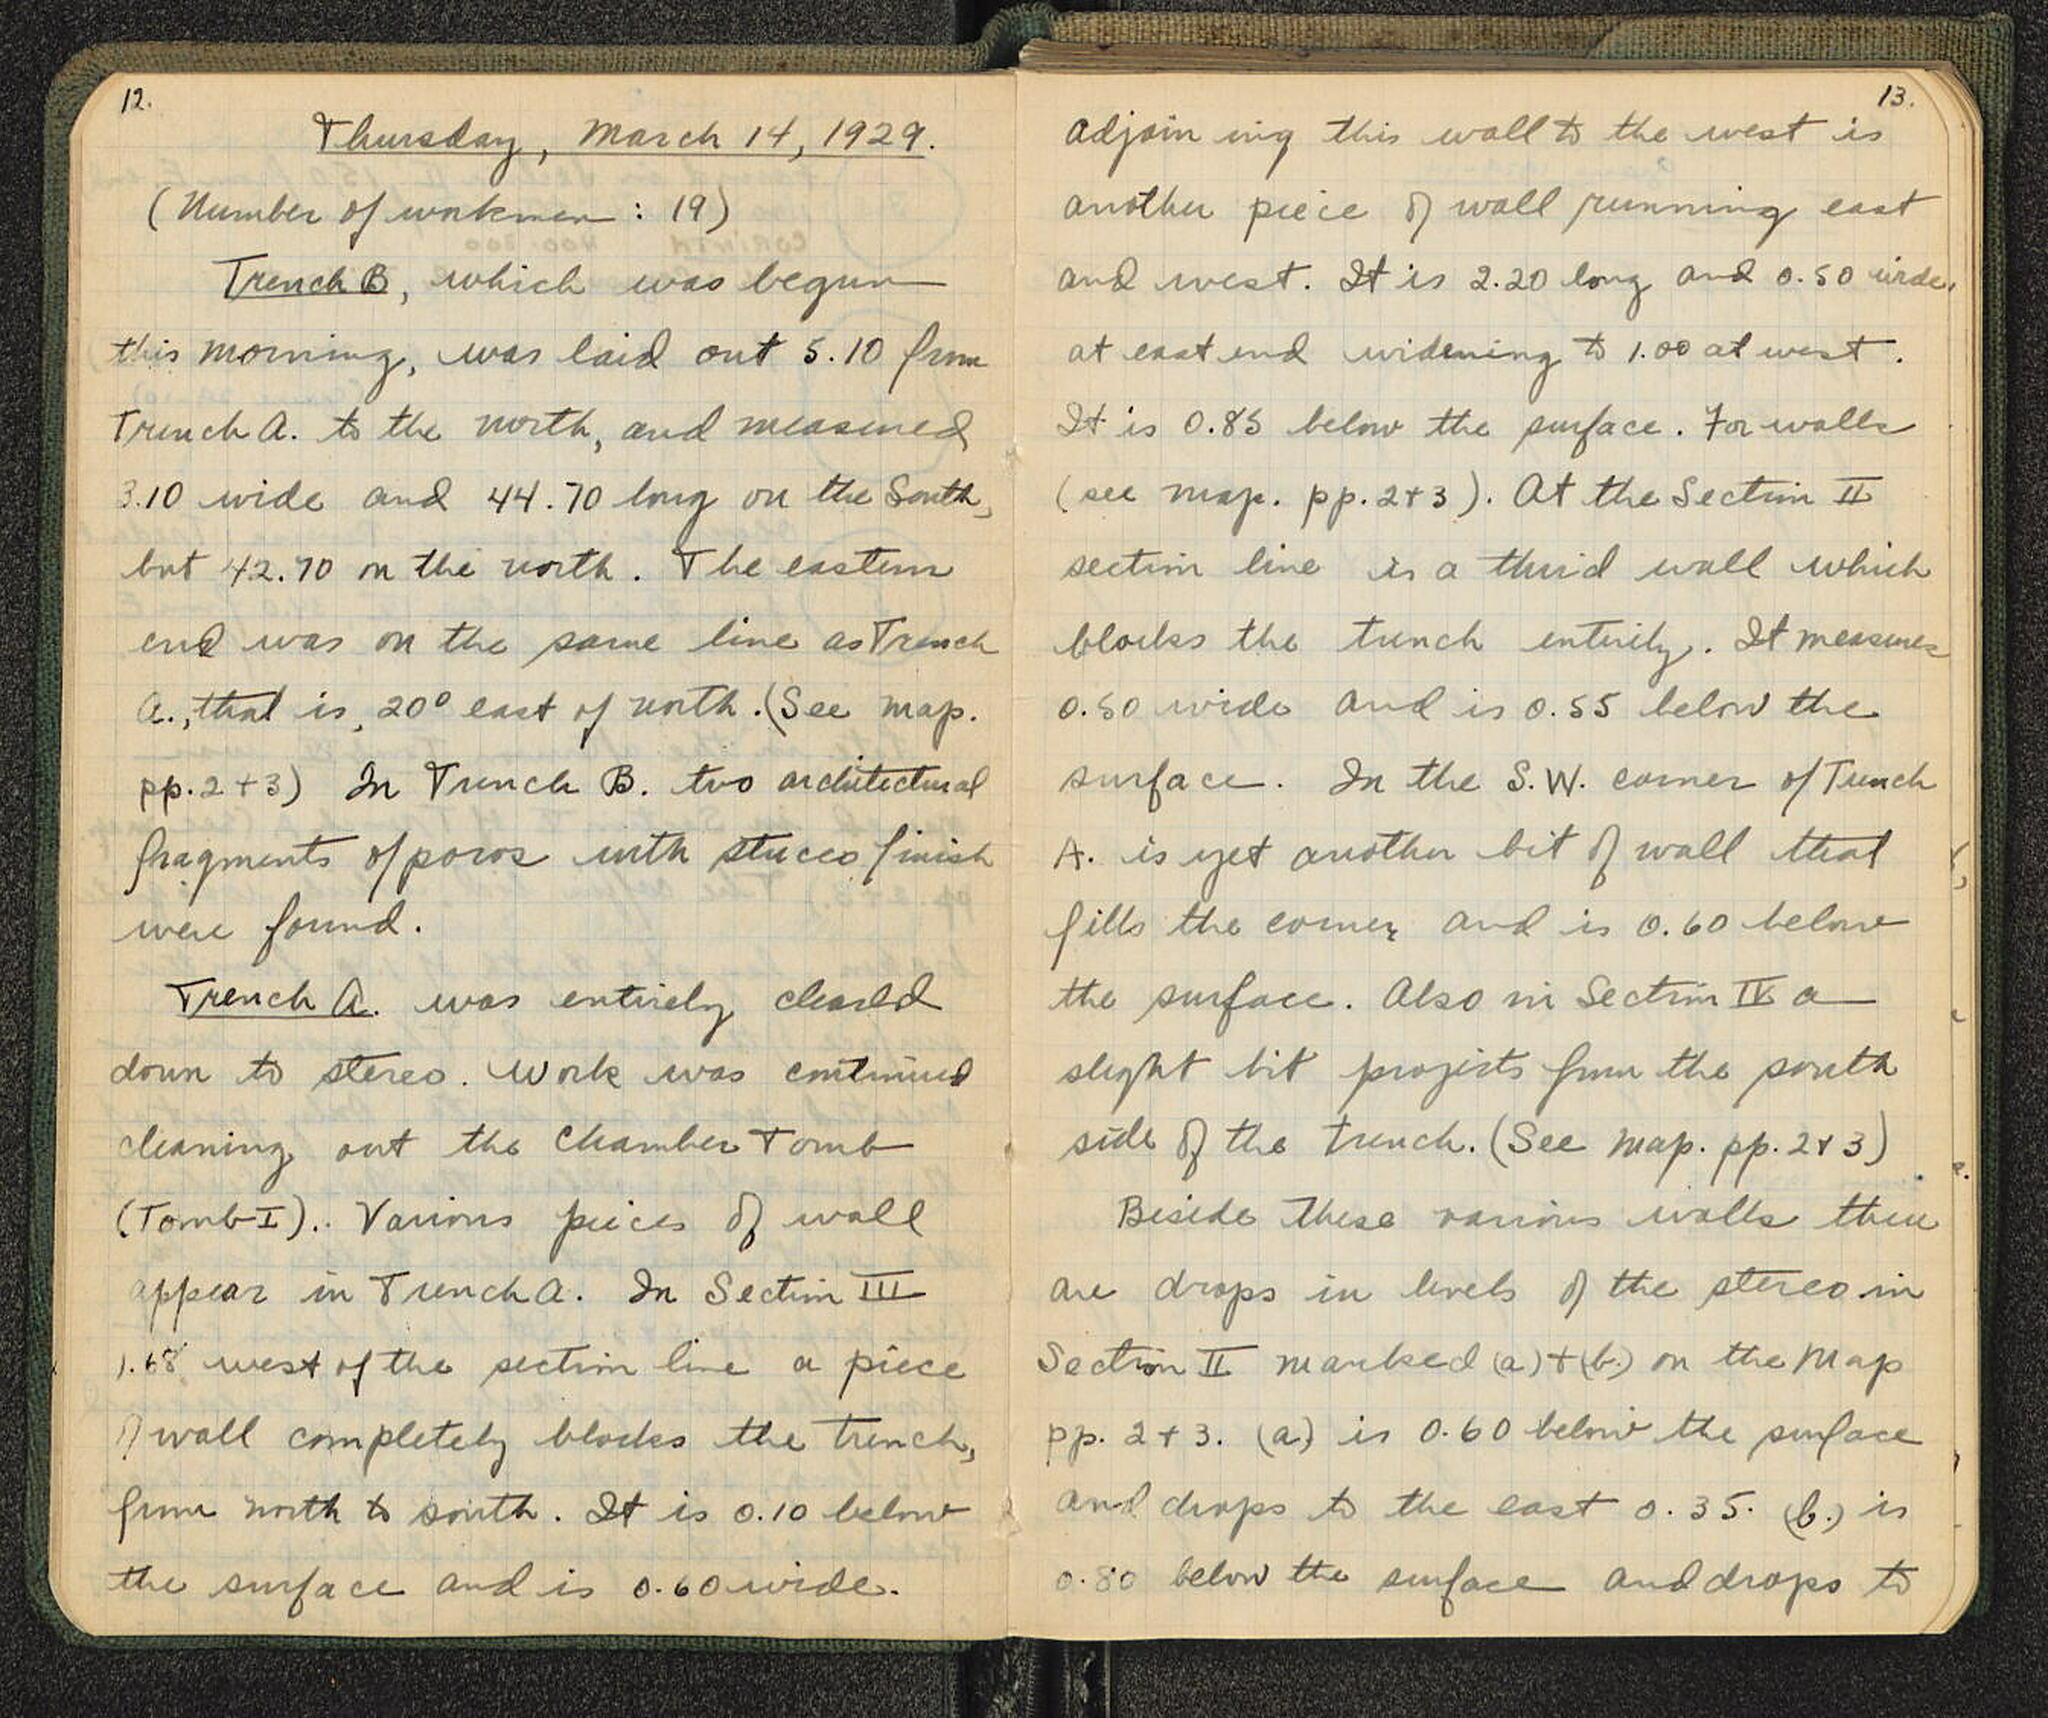 12.
Thursday, March 14, 1929.
(Number of workmen : 19)
Trench B, which was begun
this morning, was laid out 5.10 from
Trench A. to the north, and measured
3.10 wide and 44.70 long on the South,
but 42.70 on the north. The eastern
end was on the same line as Trench
A., that is, 20° east of north. (See map.
pp. 2 + 3) In Trench B. two architectural
fragments of poros with stucco finish
were found.
Trench A. was entirely cleared
down to stereo. Work was continued
cleaning out the Chamber Tomb
(Tomb I).. Various pieces of wall
appear in Trench A. In Section III
1.68 west of the section line a piece
of wall completely blocks the trench,
from north to south. It is 0.10 below
the surface and is 0.60 wide.
13.
Adjoining this wall to the west is
another piece of wall running east
and west. It is 2.20 long and 0.50 wide
at east end widening to 1.00 at west.
It is 0.85 below the surface. For walls
(see map. pp. 2 + 3). At the Section II
section line is a third wall which
blocks the trench entirely. It measures
0.50 wide and is 0.55 below the
surface. In the S.W. corner of Trench
A. is yet another bit of wall that
fills the corner and is 0.60 below
the surface. Also in Section IV a
slight bit projects from the south
side of the trench. (See map. pp. 2 + 3)
Beside these various walls there
are drops in levels of the stereo in
Section II marked (a) + (b.) on the Map
pp. 2 + 3. (a) is 0.60 below the surface
and drops to the east 0.35. (b.) is
0.80 below the surface and drops to